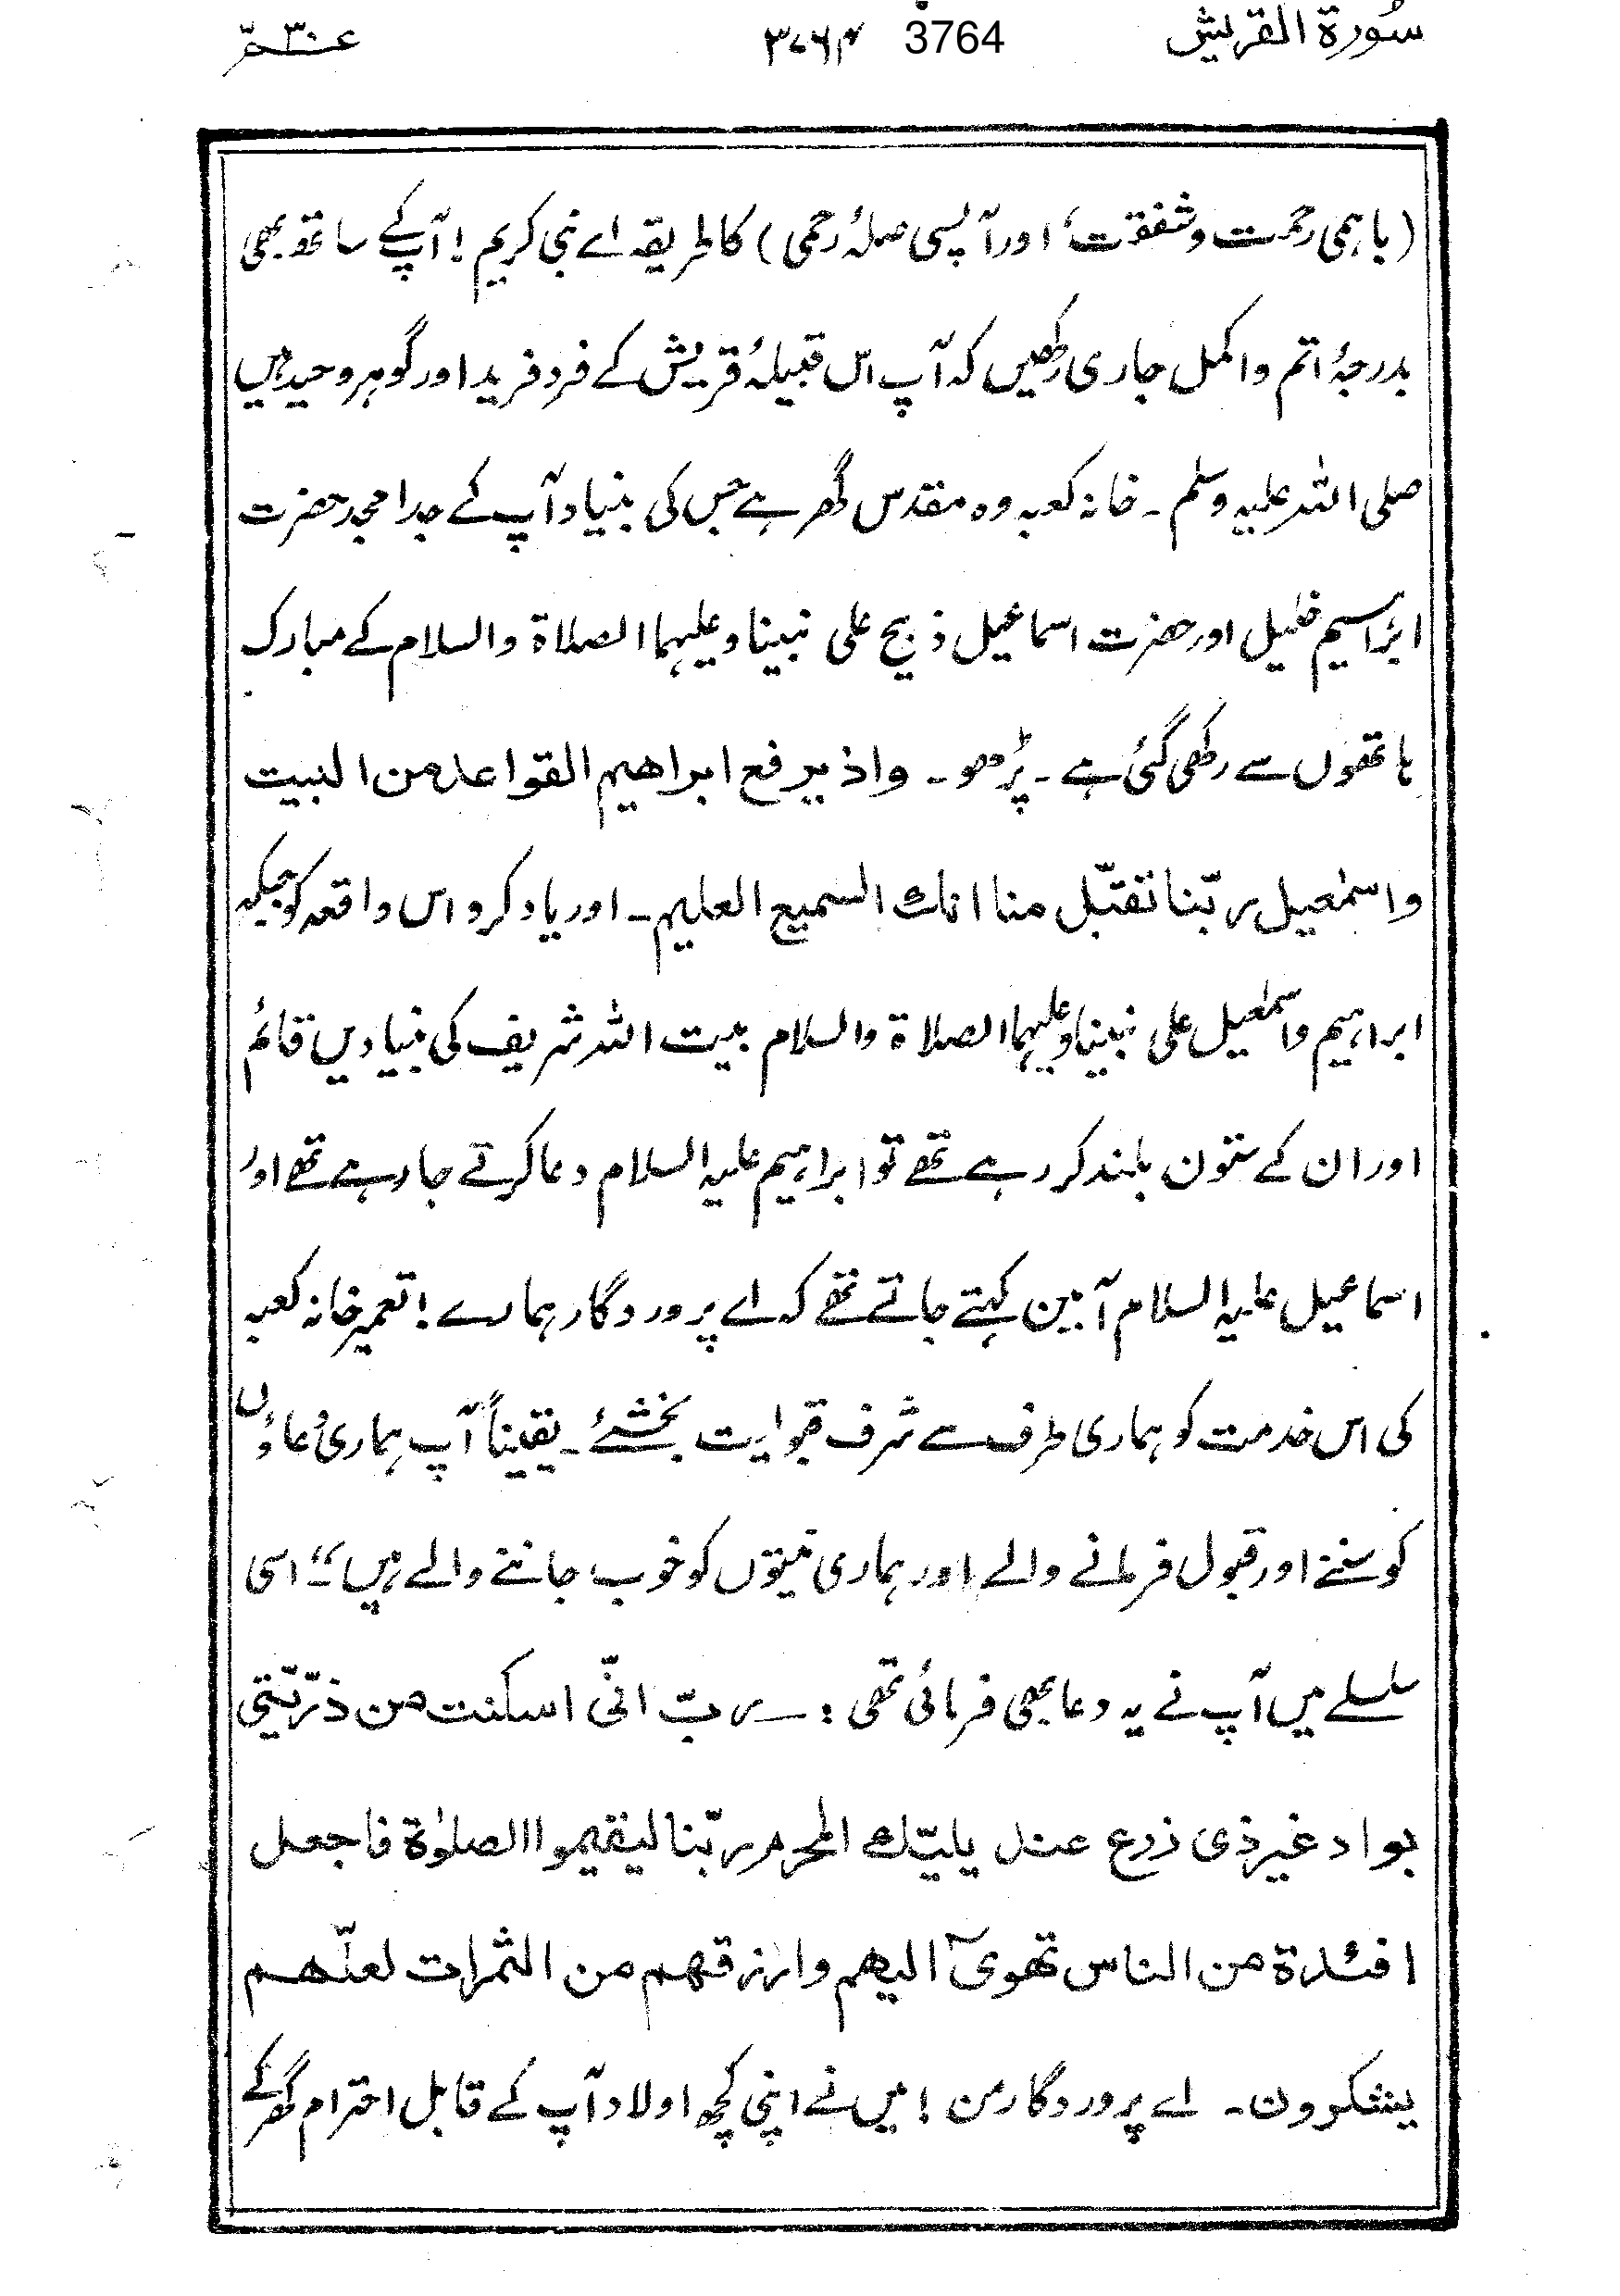 سُورة القريش 3764 ۳۷۶۴ عم ۳۰
(باہمی رحمت و شفقت، اور آپسی صلۂ رحمی) کا طریقہ اے نبی کریم! آپ کے ساتھ بھی
بدرجۂ اتم و اکمل جاری رکھیں کہ آپ اس قبیلۂ قریش کے فردِ فرید اور گوہر وحید ہیں
صلی اللہ علیہ وسلم ۔ خانہ کعبہ وہ مقدس گھر ہے جس کی بنیاد آپ کے جد امجد حضرت
ابراہیم خلیل اور حضرت اسماعیل ذبیح علی نبینا وعلیہما الصلاۃ والسلام کے مبارک
ہاتھوں سے رکھی گئی ہے ۔ پڑھو ۔ واذ یرفع ابراھیم القواعد من البیت
واسمٰعیل ربّنا تقبّل منا انك السمیع العلیم ۔ اور یاد کرو اس واقعہ کو جبکہ
ابراہیم و اسمٰعیل علی نبینا وعلیہما الصلاۃ والسلام بیت اللہ شریف کی بنیادیں قائم
اور ان کے ستون بلند کر رہے تھے تو ابراہیم علیہ السلام دعا کرتے جا رہے تھے اور
اسماعیل علیہ السلام آمین کہتے جاتے تھے کہ اے پروردگار ہمارے! تعمیر خانہ کعبہ
کی اس خدمت کو ہماری طرف سے شرف قبولیت بخشئے ۔ یقیناً آپ ہماری دُعاؤں
کو سننے اور قبول فرمانے والے اور ہماری نیتوں کو خوب جاننے والے ہیں“۔ اسی
سلسلے میں آپ نے یہ دعا بھی فرمائی تھی : ربّ انّی اسکنت من ذرّیّتی
بواد غیر ذی زرع عند بیتك المحرم ربّنا لیقیموا الصلوٰة فاجعل
افئدة من الناس تھویٓ الیھم وارزقھم من الثمرات لعلّھم
یشکرون ۔ اے پروردگار من! میں نے اپنی کچھ اولاد آپ کے قابل احترام گھر کے